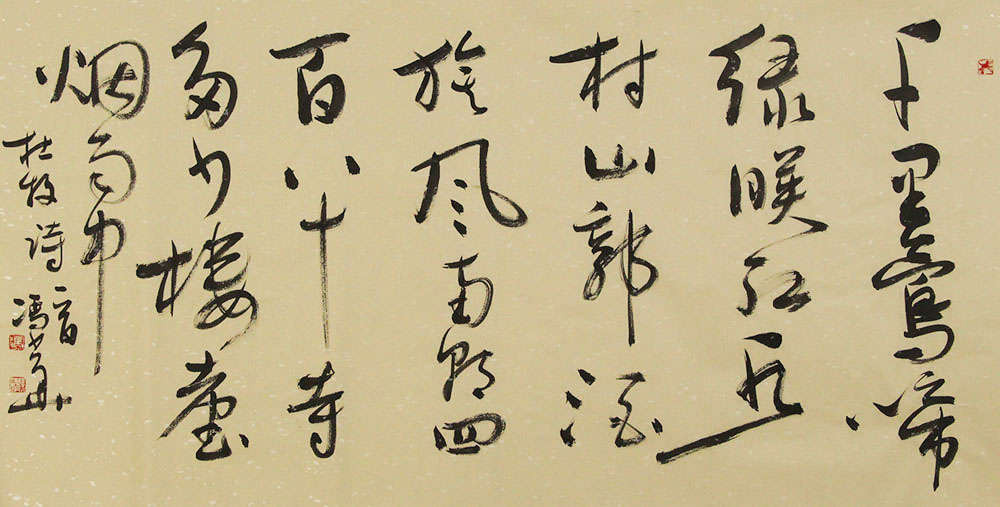 千里鶯啼
绿暎红水
村山郭酒
旗风南朝四
百八十寺
多少楼臺
烟雨中
杜牧诗一首